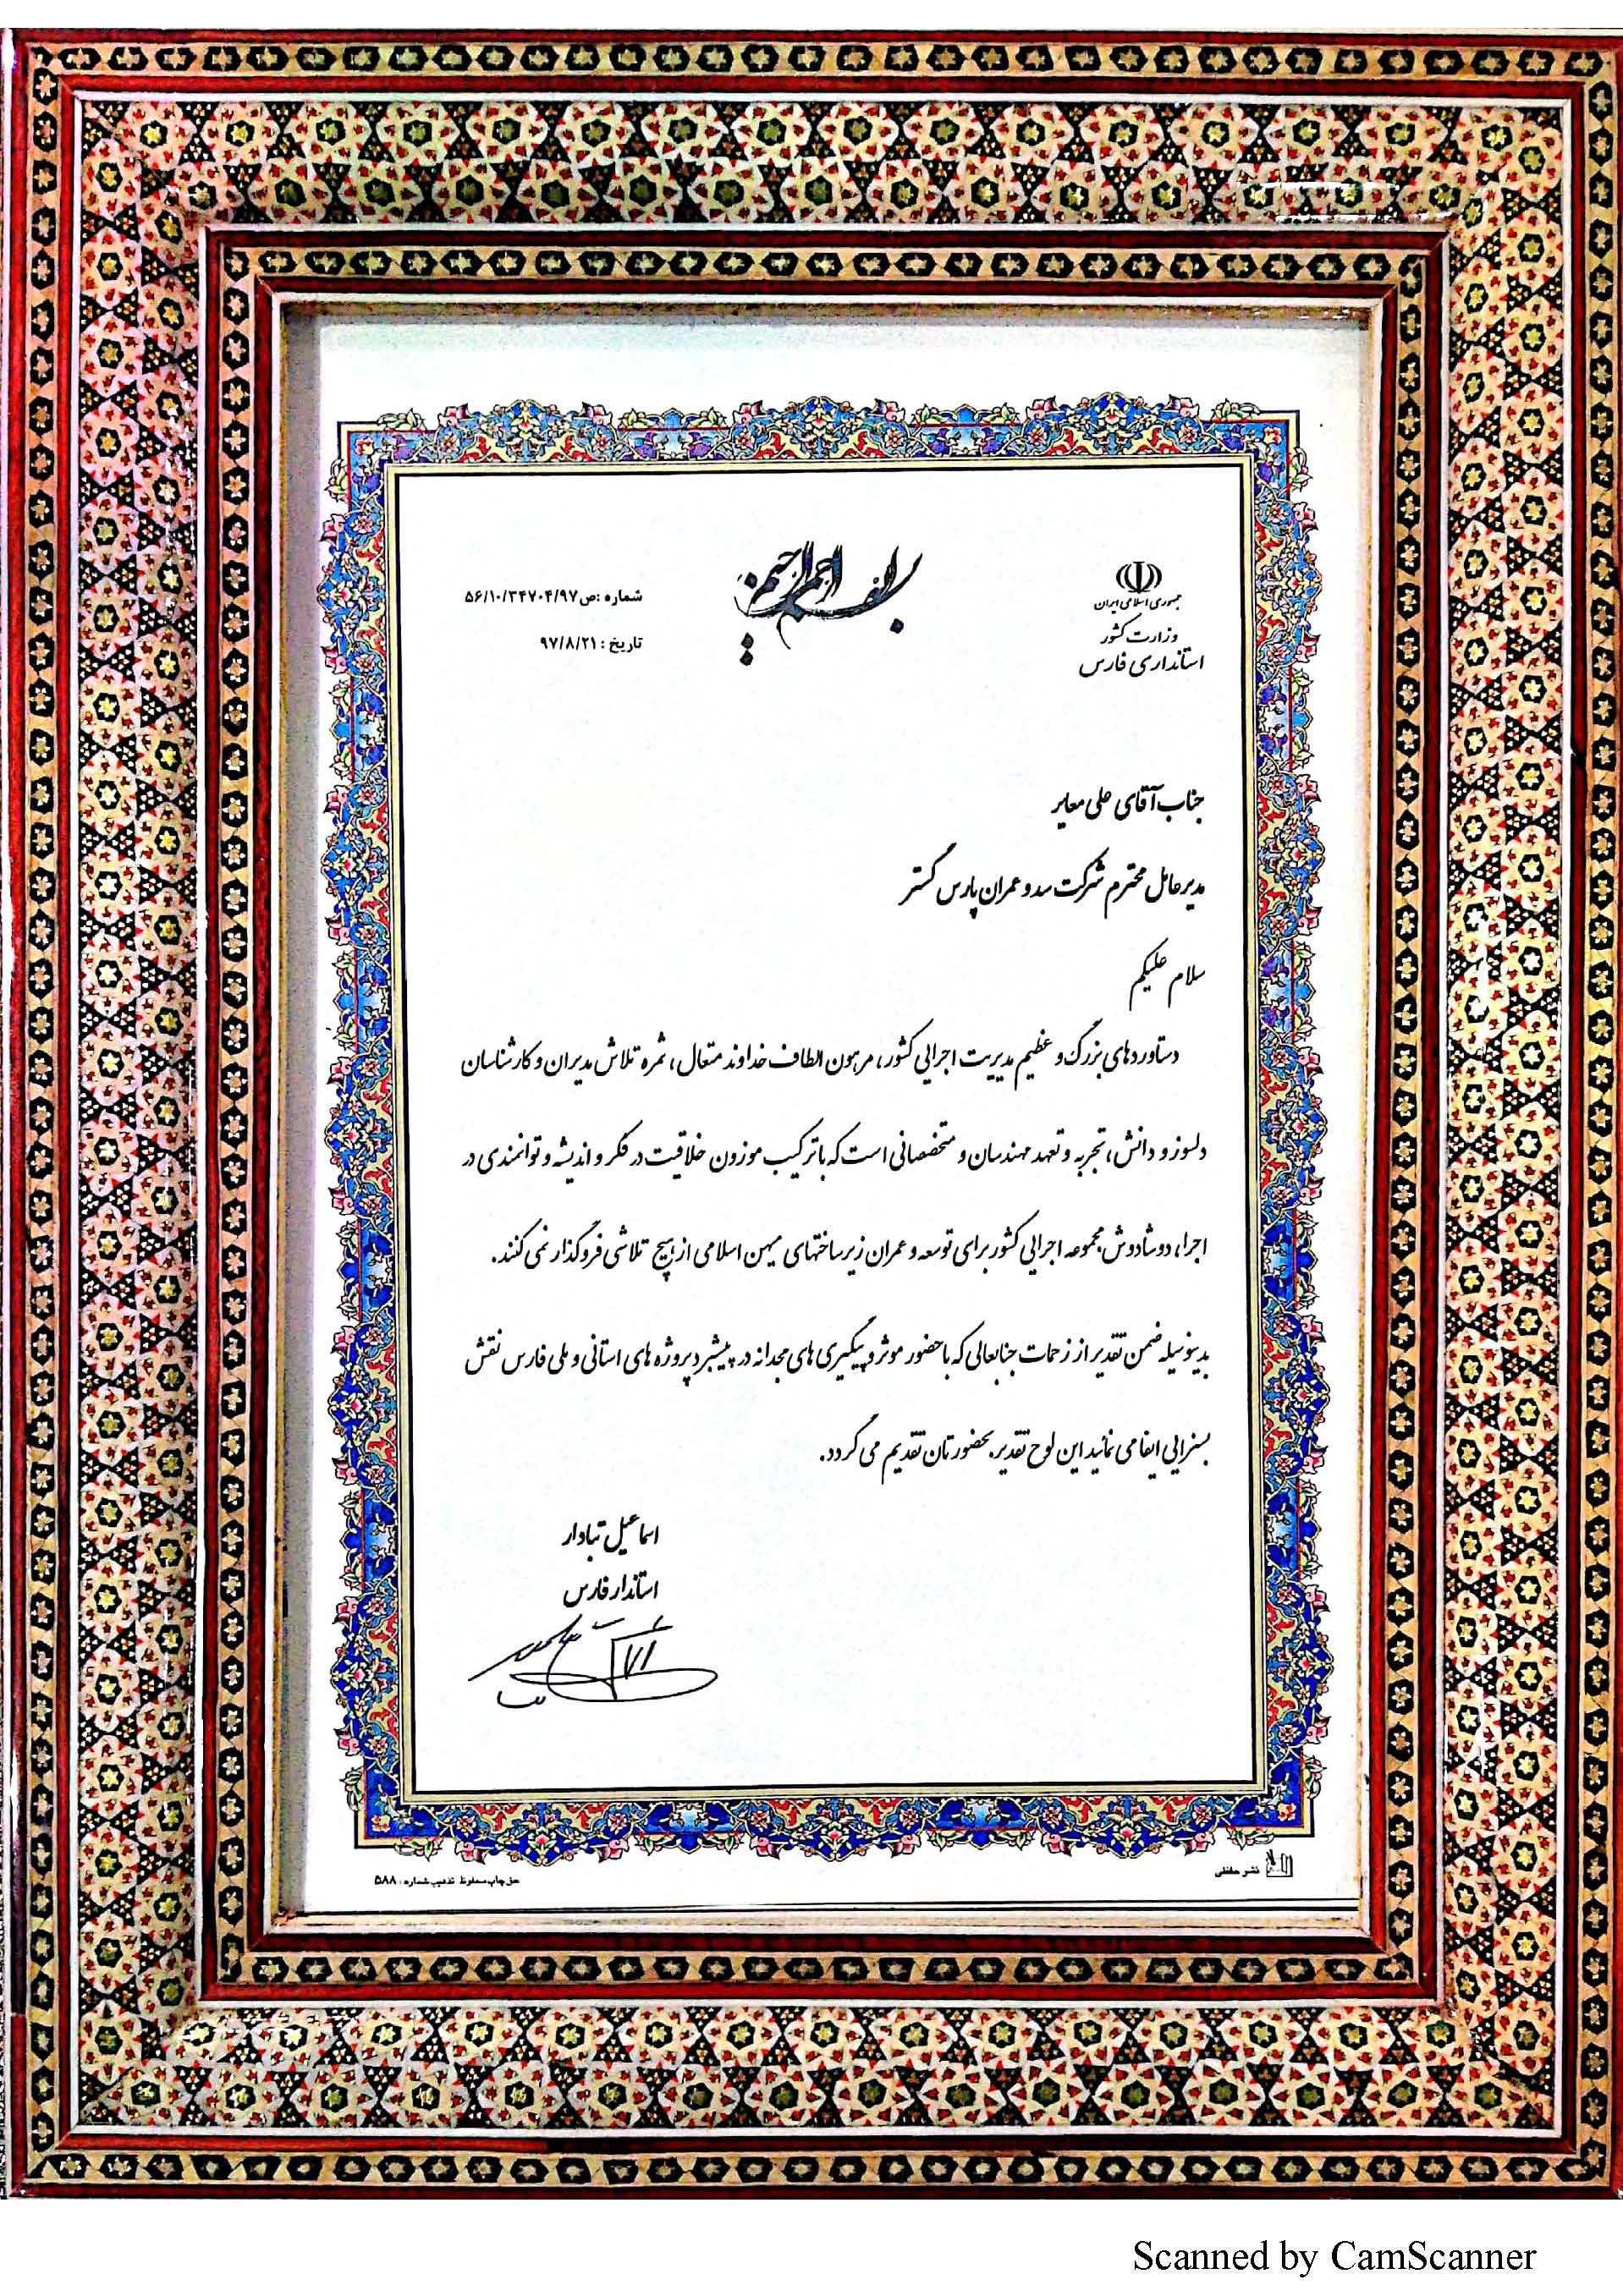 بسم الله الرحمن الرحیم
جمهوری اسلامی ایران
وزارت کشور
استانداری فارس
شماره :ص۵۶/۱۰/۳۴۷۰۴/۹۷
تاریخ : ۹۷/۸/۲۱
جناب آقای علی معایر
مدیرعامل محترم شرکت سد و عمران پارس گستر
سلام علیکم
دستاوردهای بزرگ و عظیم مدیریت اجرایی کشور، مرهون الطاف خداوند متعال، ثمره تلاش مدیران و کارشناسان
دلسوز و دانش، تجربه و تعهد مهندسان و متخصصانی است که با ترکیب موزون خلاقیت در فکر و اندیشه و توانمندی در
اجرا، دوشادوش مجموعه اجرایی کشور برای توسعه و عمران زیرساختهای میهن اسلامی از هیچ تلاشی فروگذار نمی کنند.
بدینوسیله ضمن تقدیر از زحمات جنابعالی که با حضور موثر و پیگیری های مجدانه در پیشبرد پروژه های استانی و ملی فارس نقش
بسزایی ایفا می نمائید این لوح تقدیر بحضورتان تقدیم می گردد.
اسماعیل تبادار
استاندار فارس
نشر حافظی
حق چاپ محفوظ تذهیب شماره : ۵۸۸
Scanned by CamScanner